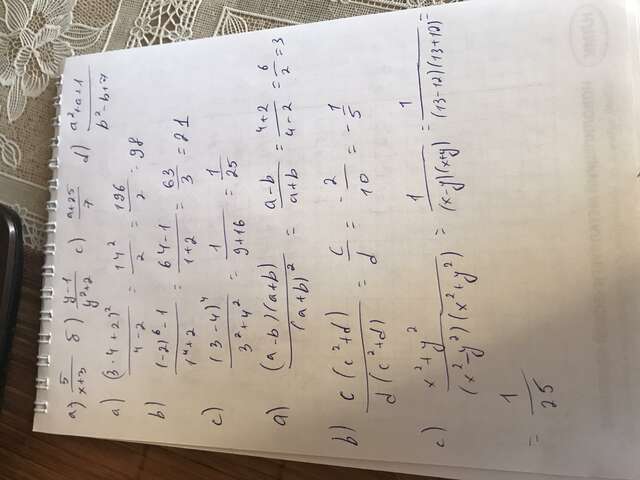 a) 5/(x+3) б) (y-1)/(y²+2) c) (a+25)/7 d) (a²+a+1)/(b²-b+7)
a) (3·4+2)²/(4-2) = 14²/2 = 196/2 = 98
b) ((-2)⁶-1)/(1⁴+2) = (64-1)/(1+2) = 63/3 = 21
c) (3-4)⁴/(3²+4²) = 1/(9+16) = 1/25
a) (a-b)(a+b)/(a+b)² = (a-b)/(a+b) = (4+2)/(4-2) = 6/2 = 3
b) c(c²+d)/(d(c²+d)) = c/d = -2/10 = -1/5
c) (x²+y²)/((x²-y²)(x²+y²)) = 1/((x-y)(x+y)) = 1/((13-12)(13+12)) =
= 1/25